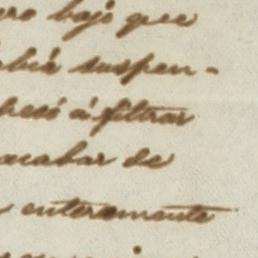 ero bajó que
abia suspen-
pesó á filtrar
acabar de
enteramente